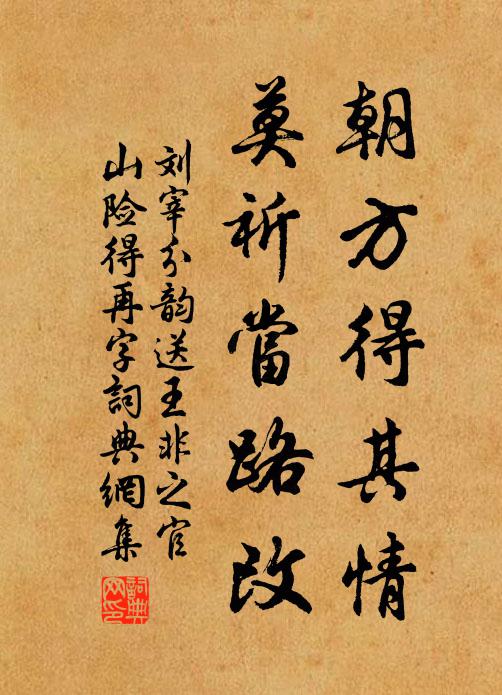 朝方得其情
莫祈當路改
刘宰分韵送王非之官
山险得再字詞典網集
詞典
网印